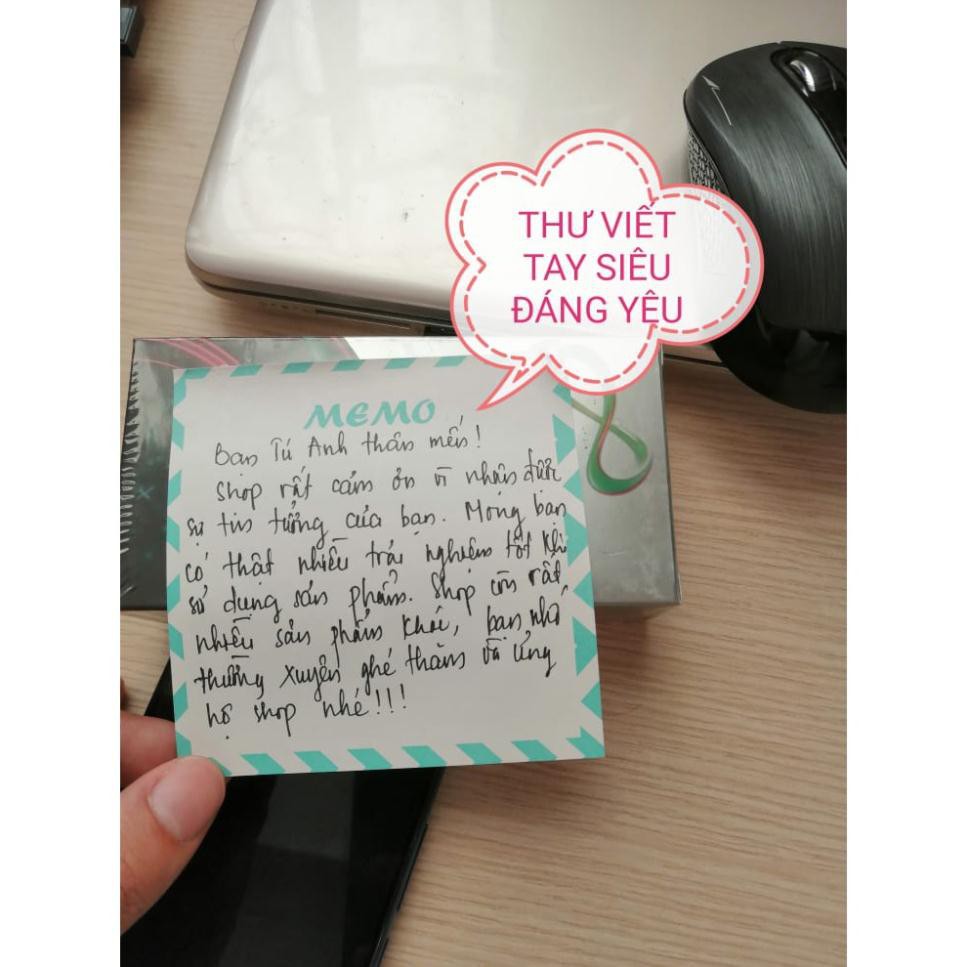 THƯ VIẾT
TAY SIÊU
ĐÁNG YÊU
MEMO
Bạn Tú Anh thân mến!
Shop rất cảm ơn vì nhận được
sự tin tưởng của bạn. Mong bạn
có thật nhiều trải nghiệm tốt khi
sử dụng sản phẩm. Shop còn rất
nhiều sản phẩm khác, bạn nhớ
thường xuyên ghé thăm và ủng
hộ shop nhé!!!